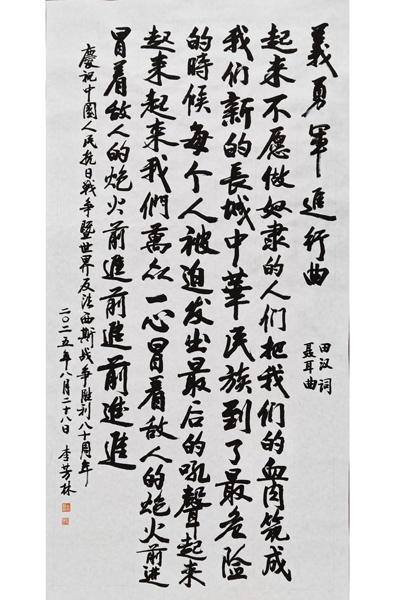 義勇軍進行曲
田汉词
聂耳曲
起来不愿做奴隶的人们把我们的血肉筑成
我们新的長城中華民族到了最危险
的時候每个人被迫发出最后的吼聲起来
起来起来我們萬众一心冒着敌人的炮火前进
冒着敌人的炮火前進前進前進進
慶祝中國人民抗日戰爭暨世界反法西斯战争胜利八十周年
二〇二五年八月二十八日 李芳林